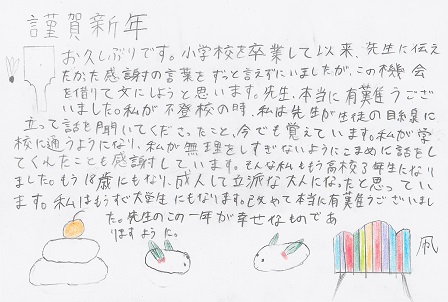 謹賀新年
お久しぶりです。小学校を卒業して以来、先生に伝え
たかった感謝の言葉をずっと言えずにいましたが、この機会
を借りて文にしようと思います。先生、本当に有難うござ
いました。私が不登校の時、私は先生が生徒の目線に
立って話を聞いてくださったこと、今でも覚えています。私が学
校に通うようになり、私が無理をしすぎないようにこまめに話をし
てくれたことも感謝しています。そんな私ももう高校3年生になり
ました。もう18歳にもなり、成人して立派な大人になったと思ってい
ます。私はもうすぐ大学生にもなります。改めて本当に有難うございまし
た。先生のこの一年が幸せなものであ
りますように。
凧